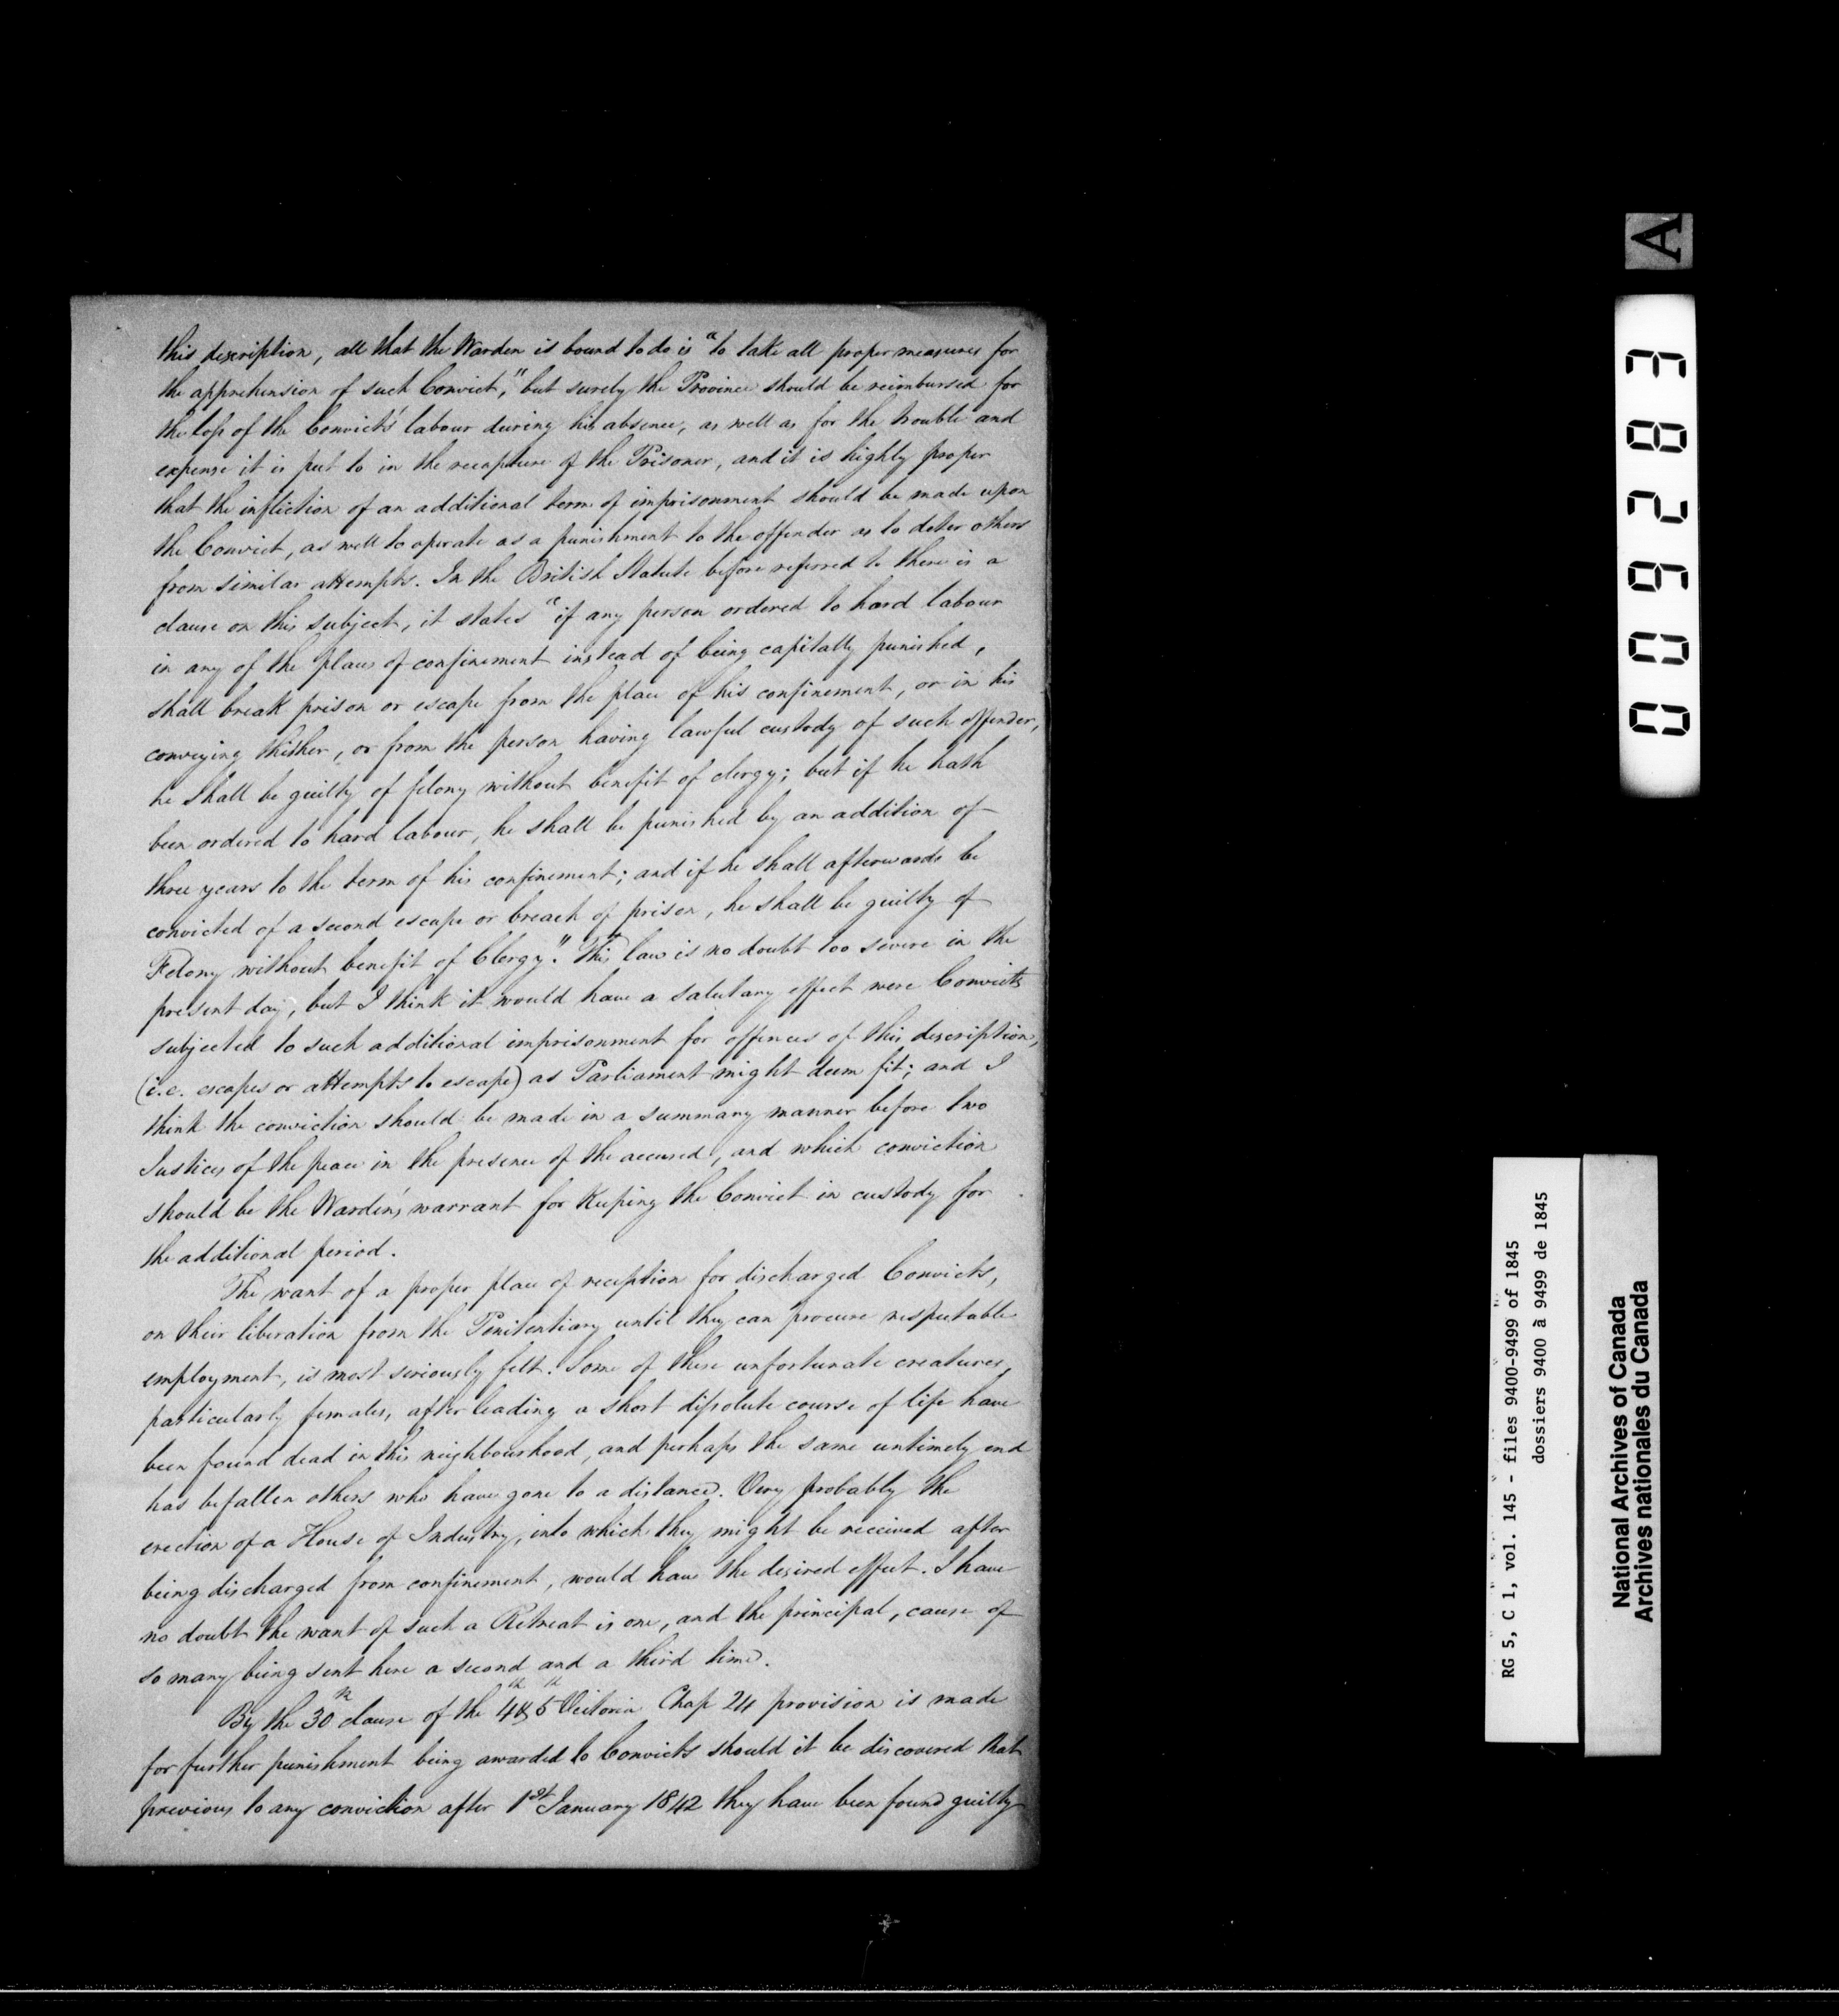 this description, all that the Warden is bound to do is "to take all proper measures for
the apprehension of such Convict," but surely the Province should be reimbursed for
the loss of the Convict's labour during his absence, as well as for the trouble and
expense it is put to in the recapture of the Prisoner, and it is highly proper
that the infliction of an additional term of imprisonment should be made upon
the Convict, as well to operate as a punishment to the offender as to deter others
from similar attempts. In the British Statute before referred to there is a
clause on this subject, it states "if any person ordered to hard labour
in any of the places of confinement instead of being capitally punished,
shall break prison or escape from the place of his confinement, or in his
conveying thither, or from the person having lawful custody of such offender,
he shall be guilty of felony without benefit of clergy; but if he hath
been ordered to hard labour, he shall be punished by an addition of
three years to the term of his confinement; and if he shall afterwards be
convicted of a second escape or breach of prison, he shall be guilty of
Felony without benefit of Clergy." This law is no doubt too severe in the
present day, but I think it would have a salutary effect were Convicts
subjected to such additional imprisonment for offences of this description,
(i.e. escapes or attempts to escape) as Parliament might deem fit; and I
think the conviction should be made in a summary manner before two
Justices of the peace in the presence of the accused, and which conviction
should be the Warden's warrant for Keeping the Convict in custody for
the additional period.
The want of a proper place of reception for discharged Convicts,
on their liberation from the Penitentiary until they can procure respectable
employment, is most seriously felt. Some of these unfortunate creatures,
particularly females, after leading a short dissolute course of life have
been found dead in this neighbourhood, and perhaps the same untimely end
has befallen others who have gone to a distance. Very probably the
erection of a House of Industry, into which they might be received after
being discharged from confinement, would have the desired effect. I have
no doubt the want of such a Retreat is one, and the principal, cause of
so many being sent here a second and a third time.
By the 30th clause of the 4th & 5th Victoria Chap 24 provision is made
for further punishment being awarded to Convicts should it be discovered that
previous to any conviction after 1st January 1842 they have been found guilty
A
009283
RG 5, C 1, vol. 145 - files 9400-9499 of 1845
dossiers 9400 à 9499 de 1845
National Archives of Canada
Archives nationales du Canada